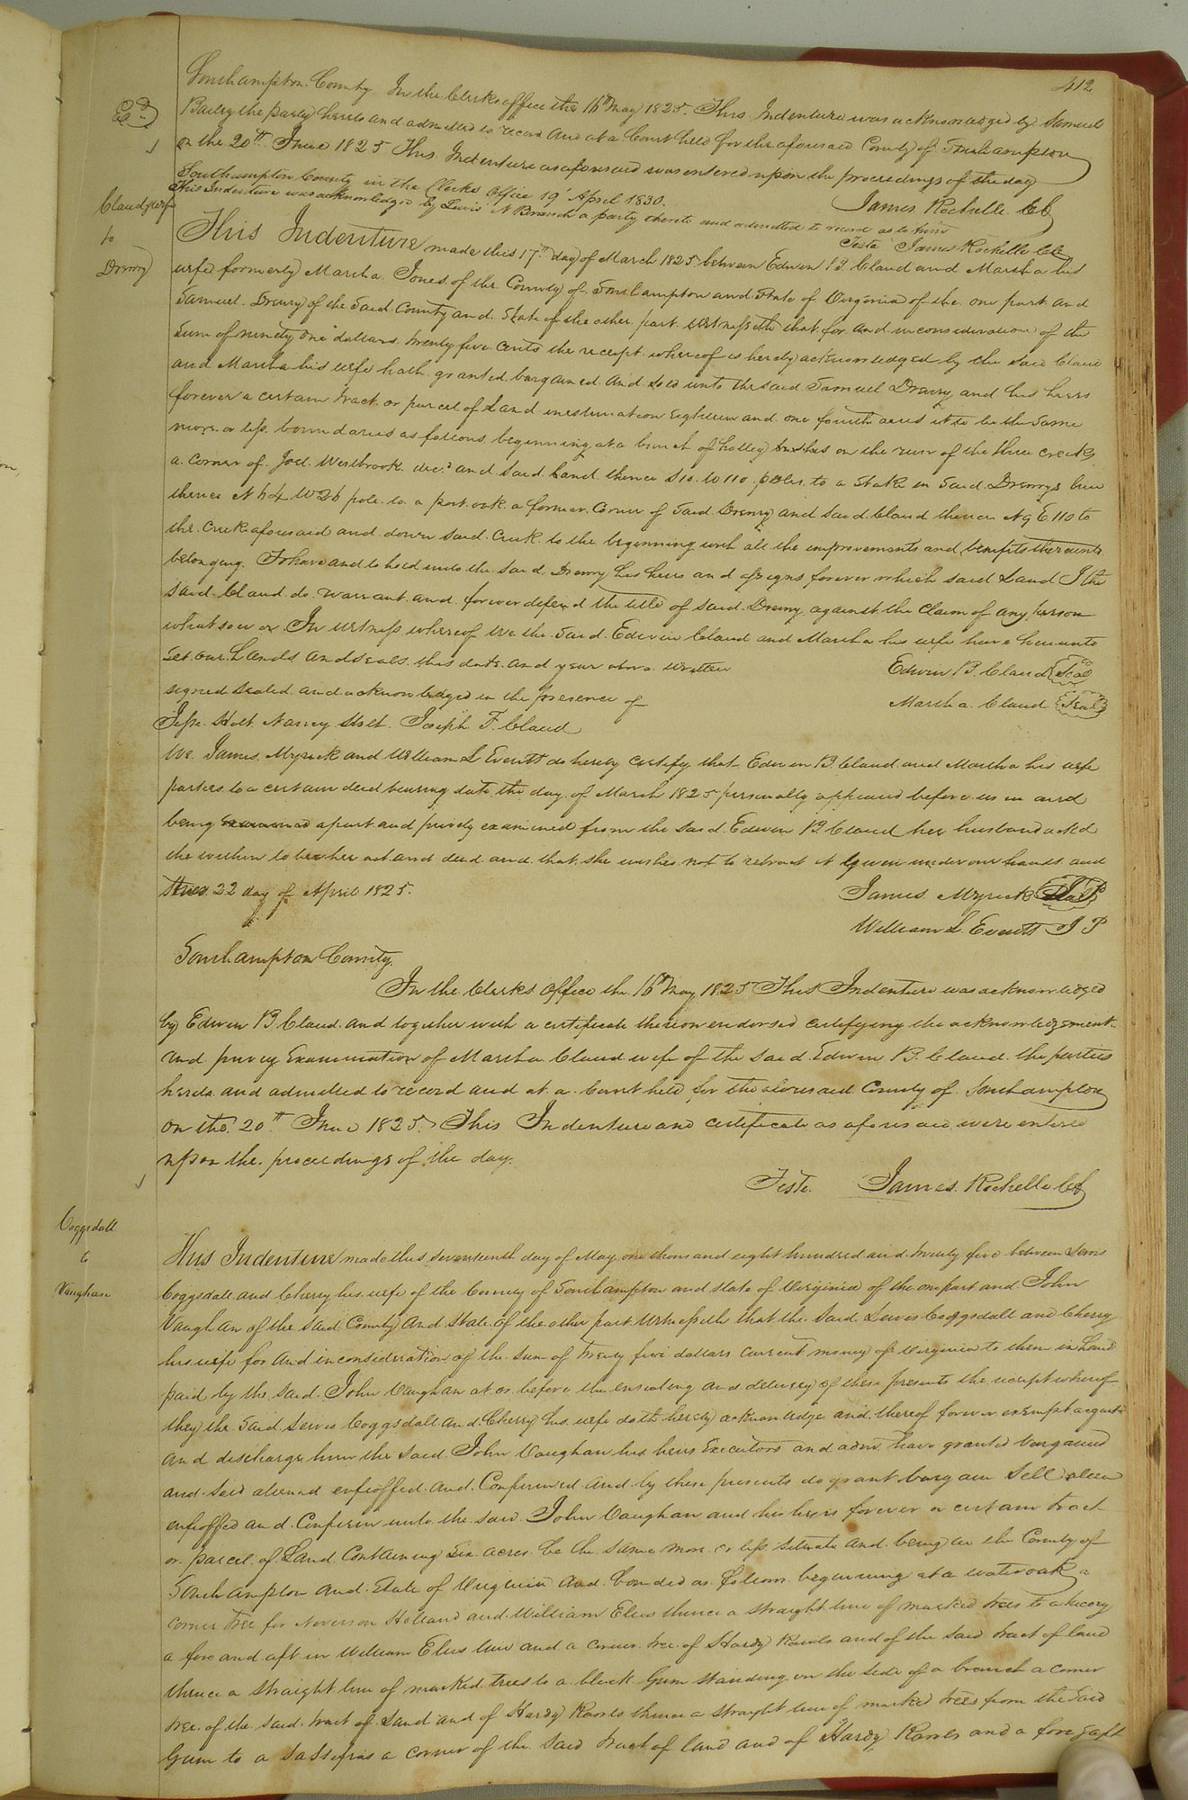 412
Southampton County. In the Clerks office the 16th May 1825. This Indenture was acknowledged by Samuel
Bailey the party hereto and admitted to record and at a Court held for the aforesaid County of Southampton
on the 20th June 1825 This Indenture as aforesaid was entered upon the proceedings of the day
James Rochelle CC
Southampton County in the Clerks Office 19' April 1830.
This Indenture was acknowledged by Lewis N Branch a party thereto and admitted to record as to him
Teste James Rochelle Clk
Claud & wife
to
Drewry
This Indenture made this 17th day of March 1825 between Edwin B. Claud and Martha his
wife formerly Martha Jones of the County of Southampton and State of Virginia of the one part and
Samuel Drewry of the said County and State of the other part Witnesseth that for and in consideration of the
sum of ninety one dollars twenty five cents the receipt whereof is hereby acknowledged by the said Claud
and Martha his wife hath granted bargained and sold unto the said Samuel Drewry and his heirs
forever a certain tract or parcel of Land in estimation Eighteen and one fourth acres it to be the same
more or less boundaries as follows beginning at a bunch of holley bushes on the run of the three creeks
a corner of Joel Westbrook decd and said land thence S10 W 110 poles to a stake in said Drewrys line
thence N 64 W 26 pole to a post oak a former corner of said Drewry and said Claud thence N 9 E 110 to
the creek aforesaid and down said creek to the beginning with all the improvements and benefits thereunto
belonging. To have and to hold unto the said Drewry his heirs and assigns forever which said Land I the
said Claud do warrant and forever defend the title of said Drewry against the claim of any person
whatsoever In witness whereof we the said Edwin Claud and Martha his wife have hereunto
set our hands and seals this date and year above written
Edwin B. Claud Seal
signed sealed and acknowledged in the presence of
Martha Claud Seal
Jesse Holt Nancy Holt Joseph F. Claud
We James Myrick and William L Everitt do hereby certify that Edwin B. Claud and Martha his wife
parties to a certain deed bearing date the day of March 1825 personally appeared before us in and
being examined apart and privily examined from the said Edwin B Claud her husband acknd
the within to be her act and deed and that she wishes not to retract it given under our hands and
this 22 day of April 1825.
James Myrick Seal
William L Everitt J P
Southampton County.
In the Clerks Office the 16th May 1825 This Indenture was acknowledged
by Edwin B. Claud and together with a certificate thereon endorsed certifying the acknowledgment
and privy Examination of Martha Claud wife of the said Edwin B. Claud the parties
hereto and admitted to record and at a Court held for the aforesaid County of Southampton
on the 20th June 1825. This Indenture and certificate as aforesaid were entered
upon the proceedings of the day.
Teste. James Rochelle CC
Coggsdall
to
Vaughan
This Indenture made this seventeenth day of May one thousand eight hundred and twenty five between Lewis
Coggsdall and Cherry his wife of the County of Southampton and state of Virginia of the one part and John
Vaughan of the said County and State of the other part Witnesseth that the said Lewis Coggsdall and Cherry
his wife for and in consideration of the sum of twenty five dollars current money of Virginia to them in hand
paid by the said John Vaughan at or before the ensealing and delivery of these presents the receipt whereof
they the said Lewis Coggsdall and Cherry his wife doth hereby acknowledge and thereof forever exempt acquit
and discharge him the said John Vaughan his heirs Executors and admr. have granted bargained
and sold aliened enfeoffed and Confirmed and by these presents do grant bargain Sell alien
enfeoffed and Confirm unto the said John Vaughan and his heirs forever a certain tract
or parcel of Land Containing six acres be the same more or less situate and being in the County of
Southampton and State of Virginia and bounded as follows beginning at a water oak a
corner tree for Noverson Holland and William Eles thence a straight line of marked trees to a hicory
a fore and aft in William Eles line and a corner tree of Hardy Rawls and of the said tract of land
thence a straight line of marked trees to a black Gum standing on the side of a branch a corner
tree of the said tract of Land and of Hardy Rawls thence a straight line of marked trees from the said
Gum to a sassafras a corner of the said tract of land and of Hardy Rawls and a fore & aft